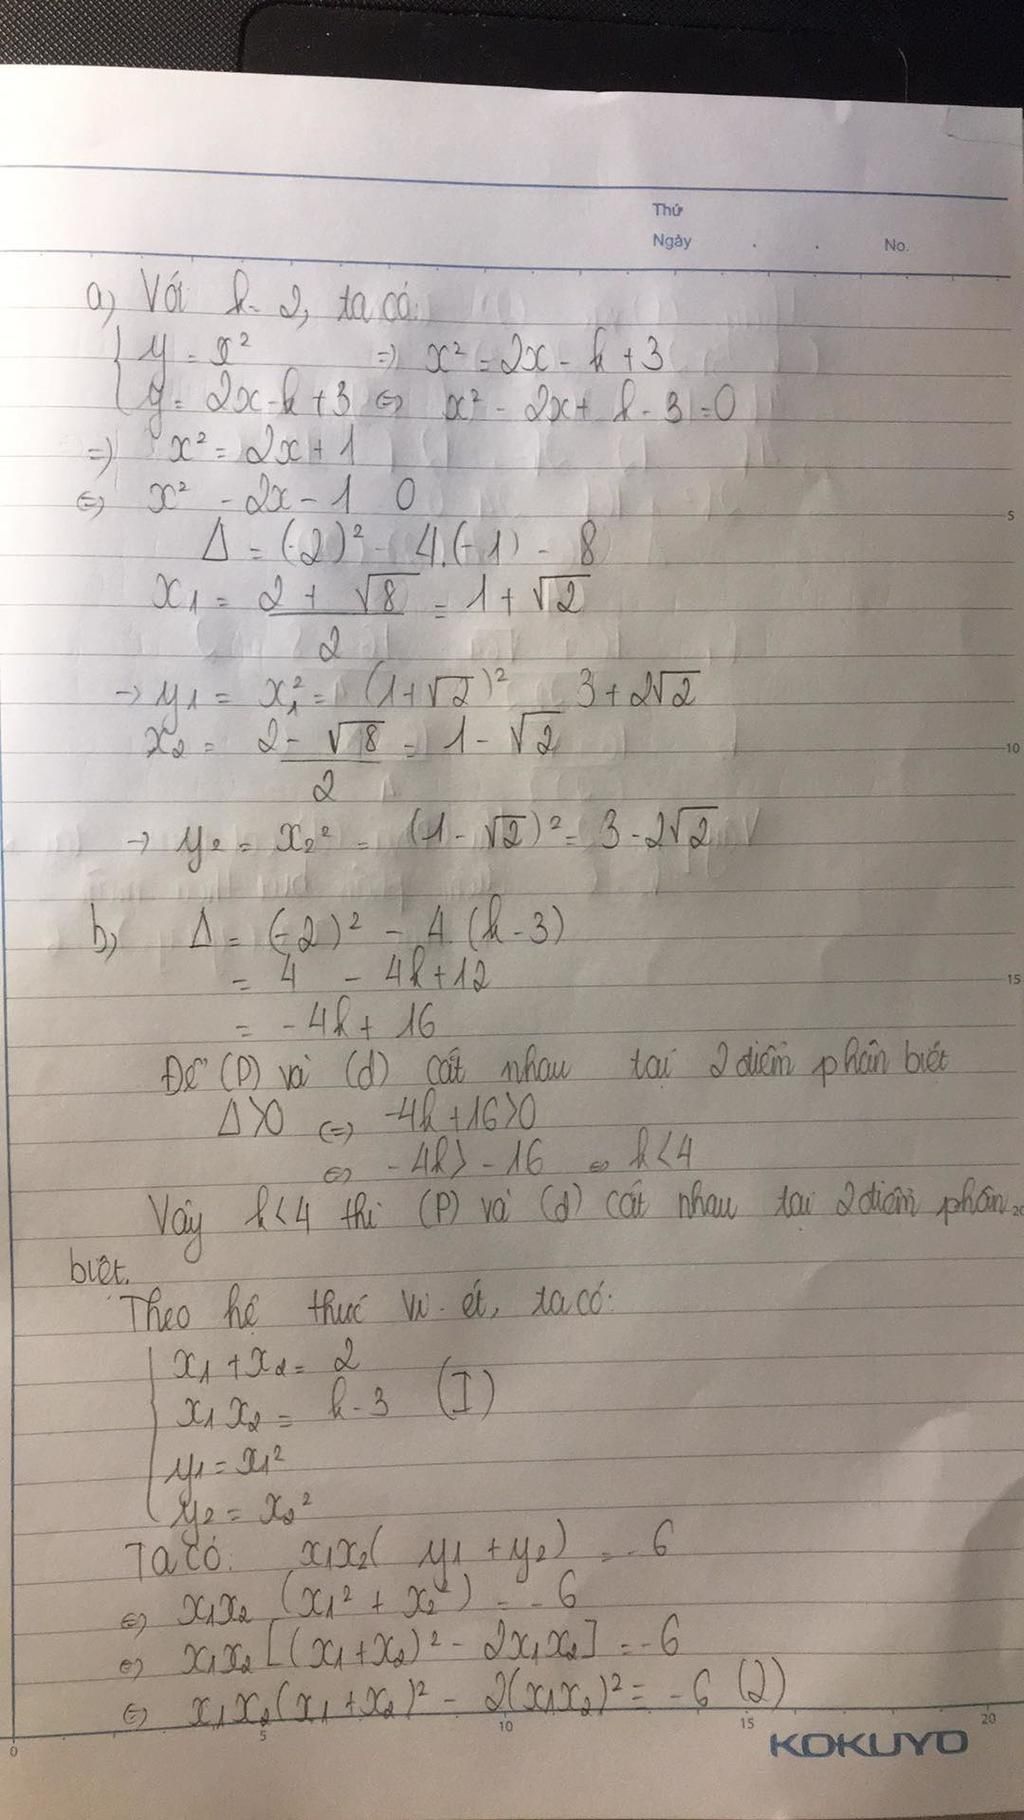 Thứ
Ngày . . No.
a) Với k = 2, ta có:
{ y = x² => x² = 2x - k + 3
y = 2x - k + 3 <=> x² - 2x + k - 3 = 0
=> x² = 2x + 1
<=> x² - 2x - 1 0
Δ = (-2)² - 4.(-1) = 8
x₁ = (2 + √8)/2 = 1 + √2
-> y₁ = x₁² = (1+√2)² 3 + 2√2
x₂ = (2 - √8)/2 = 1 - √2
-> y₂ = x₂² = (1 - √2)² = 3 - 2√2
b) Δ = (-2)² - 4.(k - 3)
= 4 - 4k + 12
= -4k + 16
Để (P) và (d) cắt nhau tại 2 điểm phân biệt
Δ > 0 <=> -4k + 16 > 0
<=> -4k > -16 <=> k < 4
Vậy k < 4 thì (P) và (d) cắt nhau tại 2 điểm phân
biệt.
Theo hệ thức vi-ét, ta có:
{ x₁ + x₂ = 2
x₁x₂ = k - 3 (I)
y₁ = x₁²
y₂ = x₂²
Ta có: x₁x₂( y₁ + y₂) = -6
<=> x₁x₂ (x₁² + x₂²) = -6
<=> x₁x₂ [(x₁ + x₂)² - 2x₁x₂] = -6
<=> x₁x₂(x₁ + x₂)² - 2(x₁x₂)² = -6 (2)
5
10
15
20
0 5 10 15 20
KOKUYO